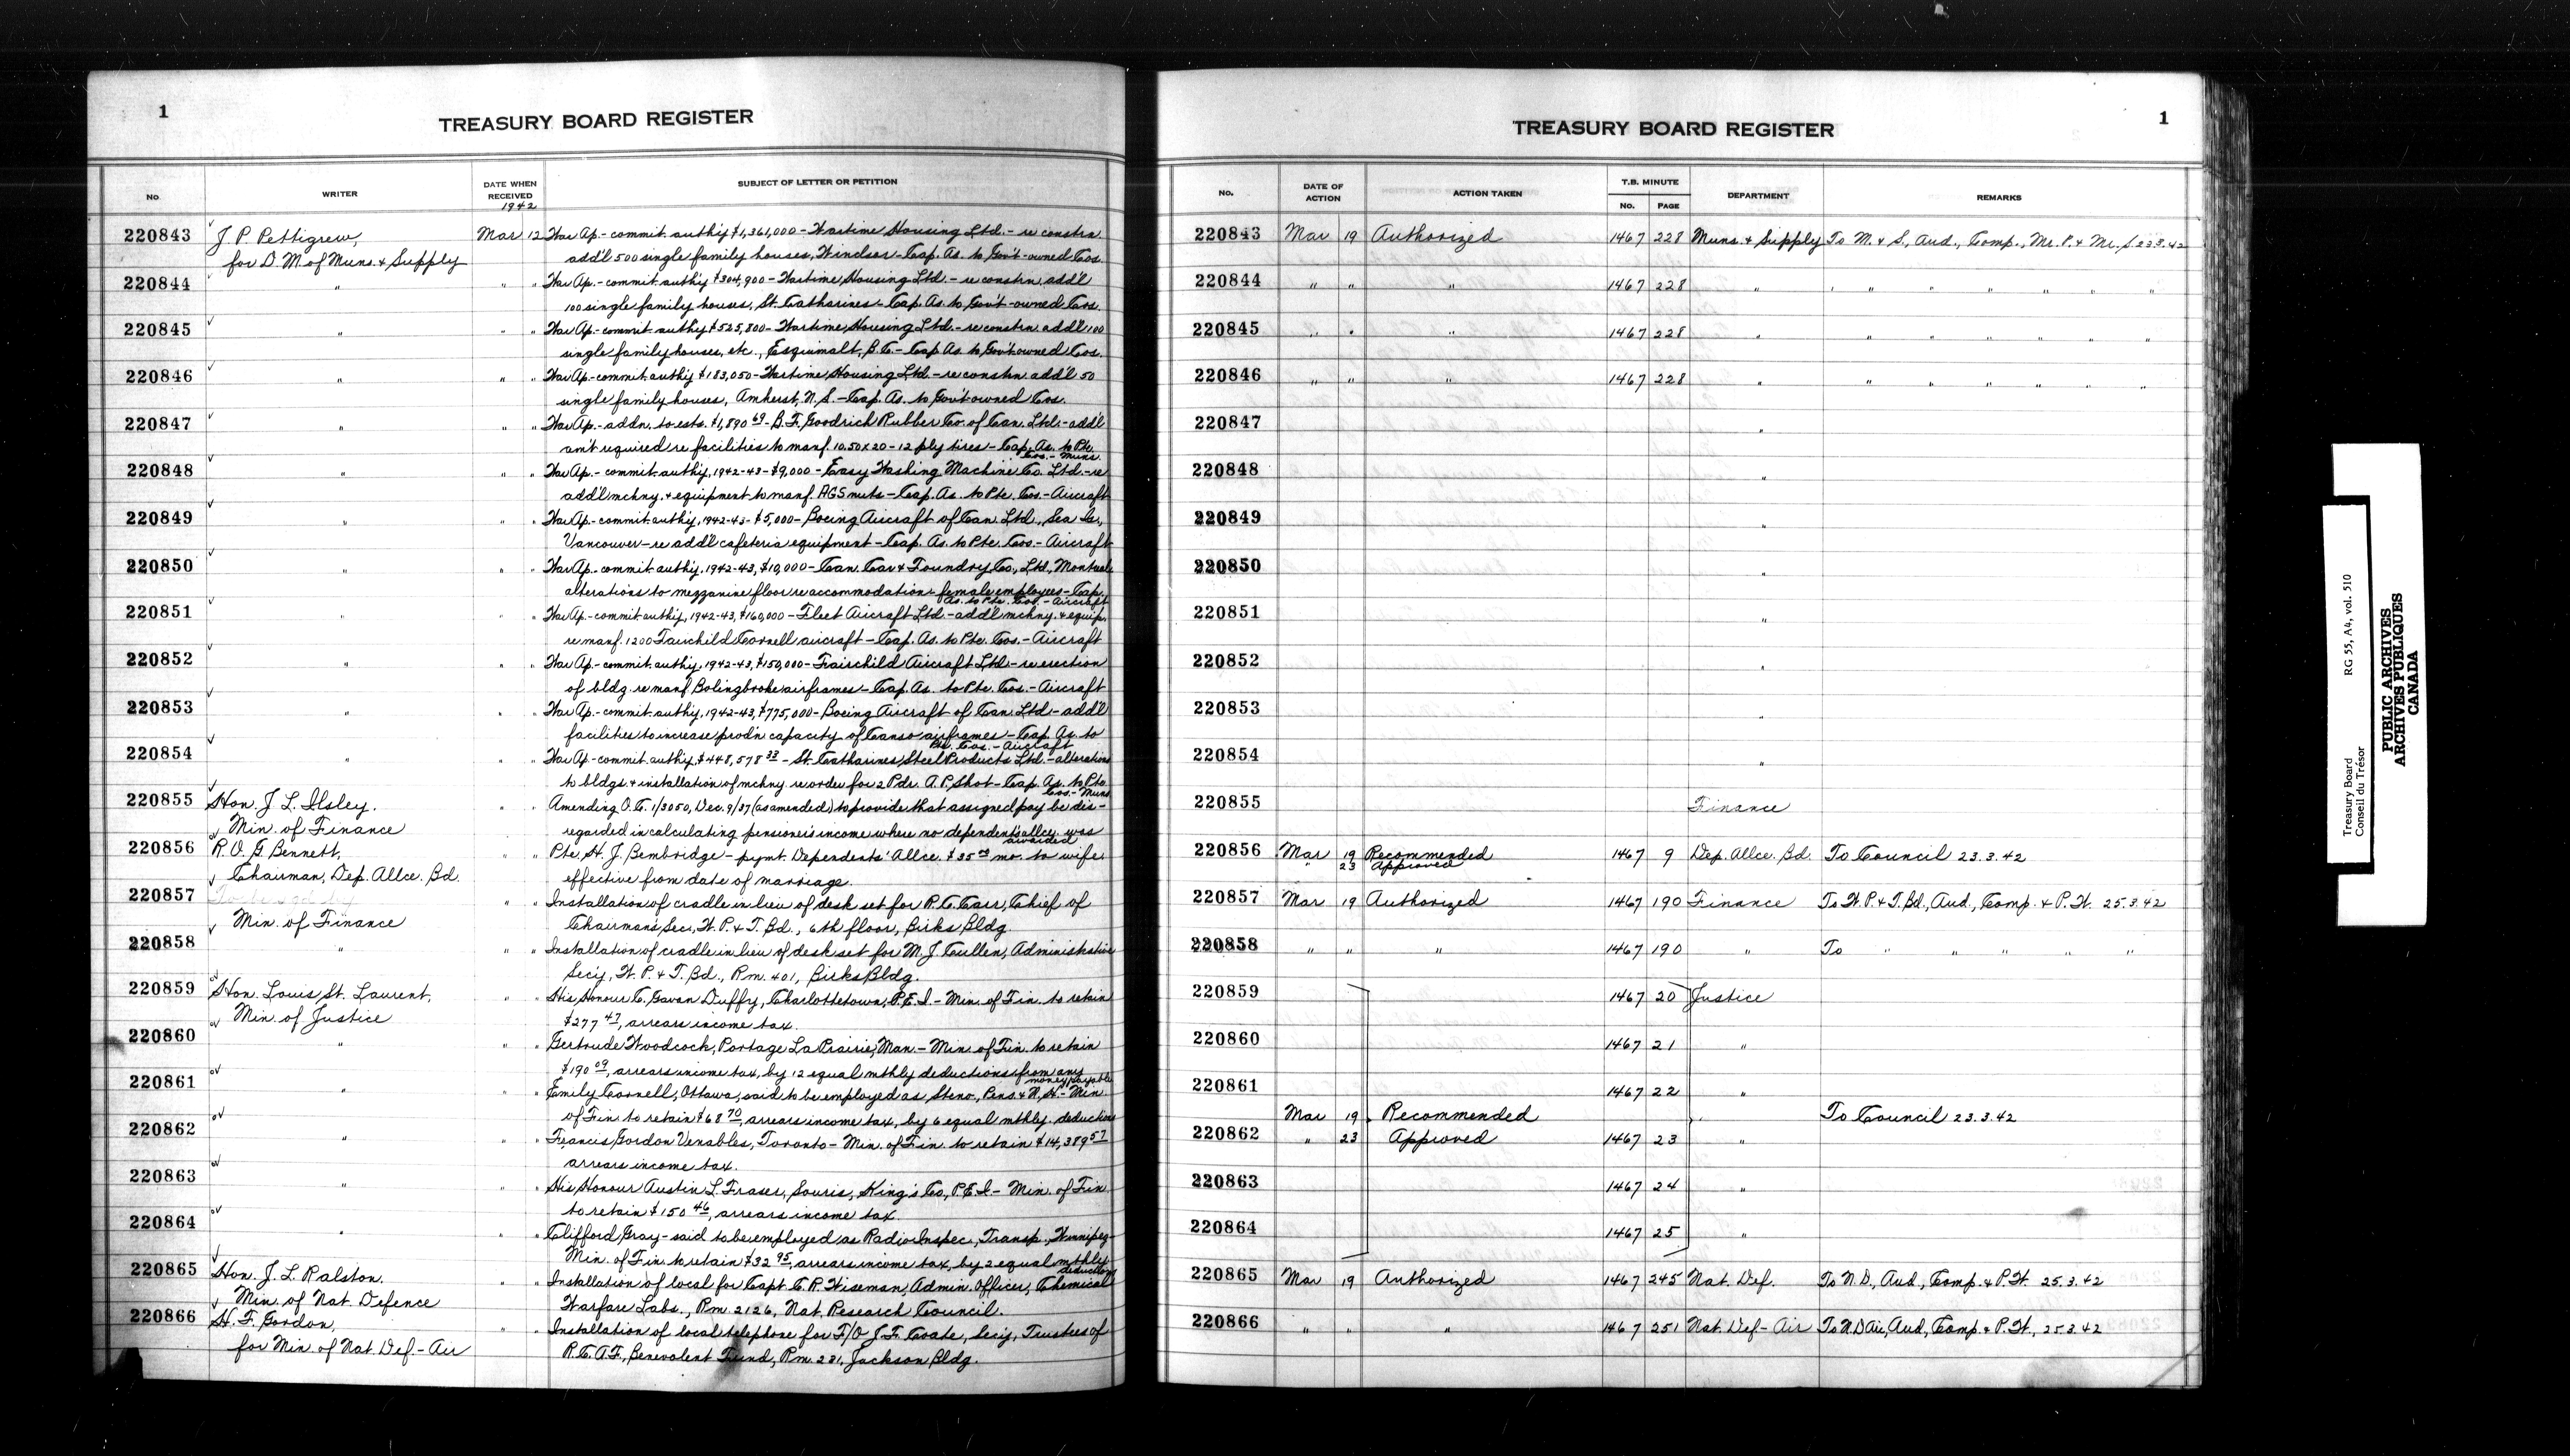 1
TREASURY BOARD REGISTER
No. WRITER DATE WHEN RECEIVED 1942 SUBJECT OF LETTER OR PETITION
220843 J. P. Pettigrew, Mar 12 War Ap.- commit. authy $1,361,000 - Wartime Housing Ltd. - re constrn.
for D.M. of Muns. & Supply add'l 500 single family houses, Windsor - Cap. As. to Gov't-owned Cos.
220844 " " " War Ap.- commit. authy $304,900 - Wartime Housing Ltd. - re constrn. add'l
100 single family houses, St. Catharines - Cap. As. to Gov't-owned Cos.
220845 " " " War Ap.- commit. authy $525,800 - Wartime Housing Ltd. - re constrn. add'l 100
single family houses, etc., Esquimalt, B.C. - Cap. As. to Gov't owned Cos.
220846 " " " War Ap.- commit. authy $183,050 - Wartime Housing Ltd. - re constrn. add'l 50
single family houses, Amherst, N.S. - Cap. As. to Gov't owned Cos.
220847 " " " War Ap.- addn. to ests. $1,890 69 - B.F. Goodrich Rubber Co. of Can. Ltd. - add'l
am't required re facilities to manf. 10.50 x 20 - 12 ply tires - Cap. As. to Pte.
Cos. - Muns.
220848 " " " War Ap.- commit. authy, 1942-43 - $9,000 - Easy Washing Machine Co. Ltd. - re
add'l mchny. & equipment to manf. AGS nuts - Cap. As. to Pte. Cos. - Aircraft
220849 " " " War Ap.- commit. authy, 1942-43 - $5,000 - Boeing Aircraft of Can. Ltd., Sea Is.,
Vancouver - re add'l cafeteria equipment - Cap. As. to Pte. Cos. - Aircraft
220850 " " " War Ap.- commit. authy, 1942-43, $10,000 - Can. Car & Foundry Co., Ltd., Montreal
alterations to mezzanine floor re accommodation female employees - Cap.
As. to Pte. Cos. - Aircraft
220851 " " " War Ap.- commit. authy, 1942-43, $160,000 - Fleet Aircraft Ltd. - add'l mchny. & equip.
re manf. 1200 Fairchild Cornell aircraft - Cap. As. to Pte. Cos. - Aircraft
220852 " " " War Ap.- commit. authy, 1942-43, $150,000 - Fairchild Aircraft Ltd. - re erection
of bldg. re manf. Bolingbroke airframes - Cap. As. to Pte. Cos. - Aircraft
220853 " " " War Ap.- commit. authy, 1942-43, $775,000 - Boeing Aircraft of Can. Ltd. - add'l
facilities to increase prod'n capacity of Canso airframes - Cap. As. to
Pte. Cos. - Aircraft
220854 " " " War Ap.- commit. authy, $448,578 33 - St. Catharines Steel Products Ltd. - alterations
to bldgs. & installation of mchny. re order for 2 Pdr. A.P. Shot - Cap. As. to Pte.
Cos. - Muns.
220855 Hon. J. L. Ilsley. " " Amending O.C. 1/3050, Dec. 9/37 (as amended) to provide that assigned pay be dis-
Min. of Finance regarded in calculating pensioner's income where no dependent's allce. was
awarded
220856 R. O. G. Bennett, " " Pte. H. J. Bembridge - pymt. Dependents' Allce. $35 00 mo. to wife
Chairman, Dep. Allce. Bd. effective from date of marriage.
220857 " " Installation of cradle in lieu of desk set for R. C. Carr, Chief of
Min. of Finance Chairman's Sec., W.P. & T. Bd., 6th floor, Birks Bldg.
220858 " " " Installation of cradle in lieu of desk set for M. J. Cullen, Administrative
Sec'y, W.P. & T. Bd., Rm. 401, Birks Bldg.
220859 Hon. Louis St. Laurent, " " His Honour C. Gavan Duffy, Charlottetown, P.E.I. - Min. of Fin. to retain
Min. of Justice $277 47, arrears income tax.
220860 " " " Gertrude Woodcock, Portage La Prairie, Man. - Min. of Fin. to retain
$190 09, arrears income tax, by 12 equal mthly deductions from any
money payable
220861 " " " Emily Cornell, Ottawa, said to be employed as Steno., Pens. & N.H. - Min.
of Fin. to retain $68 70, arrears income tax, by 6 equal mthly. deductions
220862 " " " Francis Gordon Venables, Toronto - Min. of Fin. to retain $14,389 57
arrears income tax.
220863 " " " His Honour Austin L. Fraser, Souris, King's Co., P.E.I. - Min. of Fin.
to retain $150 46, arrears income tax.
220864 " " " Clifford Gray - said to be employed as Radio Inspec., Transp., Winnipeg -
Min. of Fin. to retain $32 95, arrears income tax, by 2 equal mthly
deductions
220865 Hon. J. L. Ralston. " " Installation of local for Capt. C. R. Wiseman, Admin. Officer, Chemical
Min. of Nat. Defence Warfare Labs., Rm. 2126, Nat. Research Council.
220866 H. F. Gordon, " " Installation of local telephone for F/O J. F. Coate, Sec'y, Trustees of
for Min. of Nat. Def - Air R.C.A.F., Benevolent Fund, Rm. 231, Jackson Bldg.
TREASURY BOARD REGISTER
1
No. DATE OF ACTION ACTION TAKEN T.B. MINUTE No. PAGE DEPARTMENT REMARKS
220843 Mar 19 Authorized 1467 228 Muns. & Supply To M. & S., Aud., Comp., Mr. P. & Mr. S. 23.3.42
220844 " " " 1467 228 " " " " " " " "
220845 " " " 1467 228 " " " " " "
220846 " " " 1467 228 " " " " " " "
220847 "
220848 "
220849 "
220850 "
220851 "
220852 "
220853 "
220854 "
220855 Finance
220856 Mar 19 Recommended 1467 9 Dep. Allce. Bd. To Council 23.3.42
" 23 Approved
220857 Mar 19 Authorized 1467 190 Finance To W.P. & T. Bd., Aud., Comp. & P.W. 25.3.42
220858 " " " 1467 190 " To " " " " "
220859 1467 20 Justice
220860 1467 21 "
220861 1467 22 "
Mar 19 Recommended To Council 23.3.42
220862 " 23 Approved 1467 23 "
220863 1467 24 "
220864 1467 25 "
220865 Mar 19 Authorized 1467 245 Nat. Def. To N.D., Aud., Comp. & P.W. 25.3.42
220866 " " " 1467 251 Nat. Def - Air To N.D. Air, Aud., Comp. & P.W., 25.3.42
Treasury Board RG 55, A4, vol. 510
Conseil du Trésor
PUBLIC ARCHIVES
ARCHIVES PUBLIQUES
CANADA